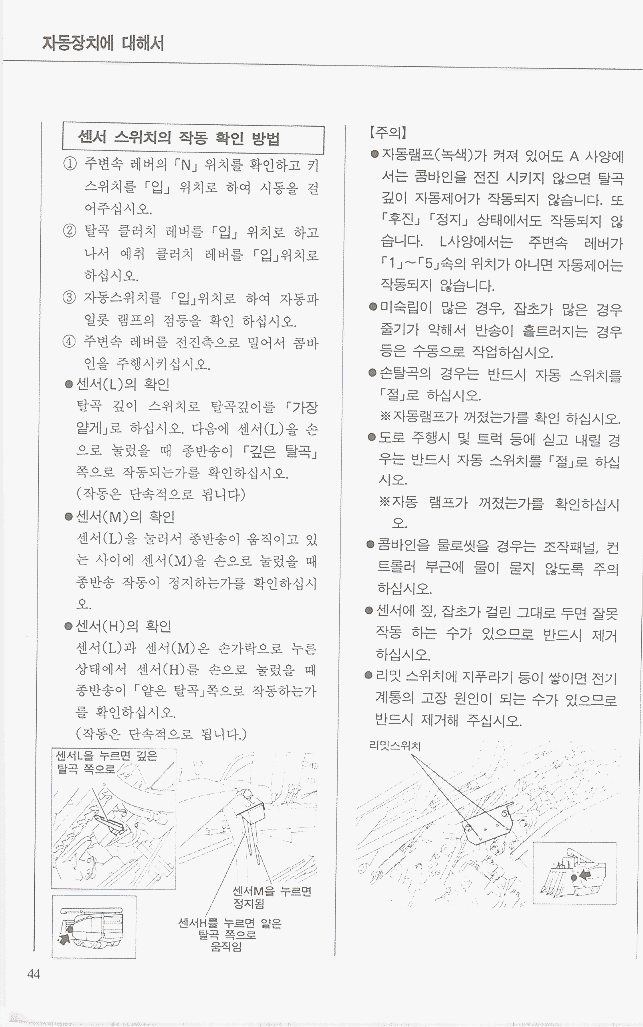 자동장치에 대해서
센서 스위치의 작동 확인 방법
① 주변속 레버의 「N」 위치를 확인하고 키
스위치를 「입」 위치로 하여 시동을 걸
어주십시오.
② 탈곡 클러치 레버를 「입」 위치로 하고
나서 예취 클러치 레버를 「입」위치로
하십시오.
③ 자동스위치를 「입」위치로 하여 자동파
일롯 램프의 점등을 확인 하십시오.
④ 주변속 레버를 전진측으로 밀어서 콤바
인을 주행시키십시오.
●센서(L)의 확인
탈곡 깊이 스위치로 탈곡깊이를 「가장
얕게」로 하십시오. 다음에 센서(L)을 손
으로 눌렀을 때 종반송이 「깊은 탈곡」
쪽으로 작동되는가를 확인하십시오.
(작동은 단속적으로 됩니다)
●센서(M)의 확인
센서(L)을 눌러서 종반송이 움직이고 있
는 사이에 센서(M)을 손으로 눌렀을 때
종반송 작동이 정지하는가를 확인하십시
오.
●센서(H)의 확인
센서(L)과 센서(M)은 손가락으로 누른
상태에서 센서(H)를 손으로 눌렀을 때
종반송이 「얕은 탈곡」쪽으로 작동하는가
를 확인하십시오.
(작동은 단속적으로 됩니다.)
센서L을 누르면 깊은
탈곡 쪽으로
센서M을 누르면
정지됨
센서H를 누르면 얕은
탈곡 쪽으로
움직임
【주의】
●자동램프(녹색)가 켜져 있어도 A 사양에
서는 콤바인을 전진 시키지 않으면 탈곡
깊이 자동제어가 작동되지 않습니다. 또
「후진」 「정지」 상태에서도 작동되지 않
습니다. L사양에서는 주변속 레버가
「1」~「5」속의 위치가 아니면 자동제어는
작동되지 않습니다.
●미숙립이 많은 경우, 잡초가 많은 경우
줄기가 약해서 반송이 흩트러지는 경우
등은 수동으로 작업하십시오.
●손탈곡의 경우는 반드시 자동 스위치를
「절」로 하십시오.
※자동램프가 꺼졌는가를 확인 하십시오.
●도로 주행시 및 트럭 등에 싣고 내릴 경
우는 반드시 자동 스위치를 「절」로 하십
시오.
※자동 램프가 꺼졌는가를 확인하십시
오.
●콤바인을 물로씻을 경우는 조작패널, 컨
트롤러 부근에 물이 묻지 않도록 주의
하십시오.
●센서에 짚, 잡초가 걸린 그대로 두면 잘못
작동 하는 수가 있으므로 반드시 제거
하십시오.
●리밋 스위치에 지푸라기 등이 쌓이면 전기
계통의 고장 원인이 되는 수가 있으므로
반드시 제거해 주십시오.
리밋스위치
44